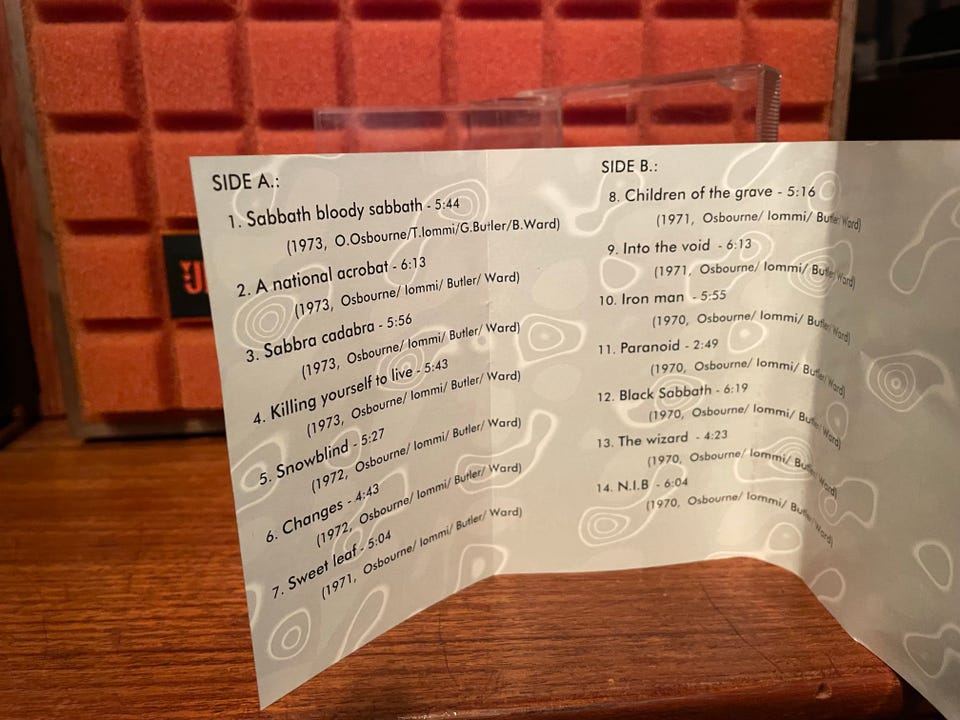 SIDE A.:
1. Sabbath bloody sabbath - 5:44
(1973, O.Osbourne/T.Iommi/G.Butler/B.Ward)
2. A national acrobat - 6:13
(1973, Osbourne/ Iommi/ Butler/ Ward)
3. Sabbra cadabra - 5:56
(1973, Osbourne/ Iommi/ Butler/ Ward)
4. Killing yourself to live - 5:43
(1973, Osbourne/ Iommi/ Butler/ Ward)
5. Snowblind - 5:27
(1972, Osbourne/ Iommi/ Butler/ Ward)
6. Changes - 4:43
(1972, Osbourne/ Iommi/ Butler/ Ward)
7. Sweet leaf - 5:04
(1971, Osbourne/ Iommi/ Butler/ Ward)
SIDE B.:
8. Children of the grave - 5:16
(1971, Osbourne/ Iommi/ Butler/ Ward)
9. Into the void - 6:13
(1971, Osbourne/ Iommi/ Butler/ Ward)
10. Iron man - 5:55
(1970, Osbourne/ Iommi/ Butler/ Ward)
11. Paranoid - 2:49
(1970, Osbourne/ Iommi/ Butler/ Ward)
12. Black Sabbath - 6:19
(1970, Osbourne/ Iommi/ Butler/ Ward)
13. The wizard - 4:23
(1970, Osbourne/ Iommi/ Butler/ Ward)
14. N.I.B - 6:04
(1970, Osbourne/ Iommi/ Butler/ Ward)